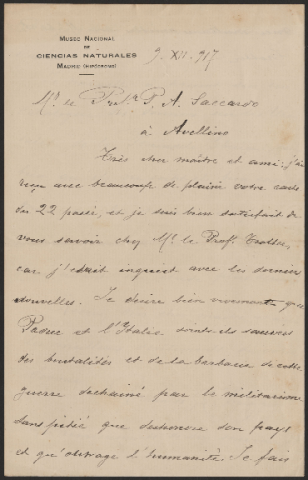 Museo Nacional
DE
CIENCIAS NATURALES
Madrid (Hipódromo)
9. XII. 917
Mr le Profr P. A. Saccardo
à Avellino
Très cher maître et ami: j'ai
reçu avec beaucoup de plaisir votre carte
du 22 passé, et je suis bien satisfait de
vous savoir chez Mr. le Prof. Trotter
car j'était inquiet avec les dernier
nouvelles. Je désire bien vivement que
Padoue et l'Italie soient-ils sauvés
des brutalités et de la barbarie de cette
guerre dechainé par le militarisme
sans pitié que deshonore son pays
et qu'outrage l'humanité. Je fais